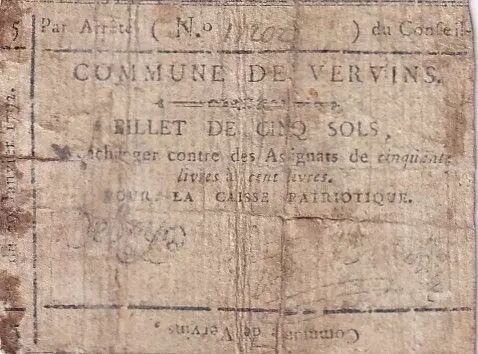 5 Par Arrêté ( N.º ) du Conseil-
COMMUNE DE VERVINS.
BILLET DE CINQ SOLS,
échanger contre des Assignats de cinquante
livres à cent livres.
POUR LA CAISSE PATRIOTIQUE.
Commune de Vervins,
JANVIER 1792.